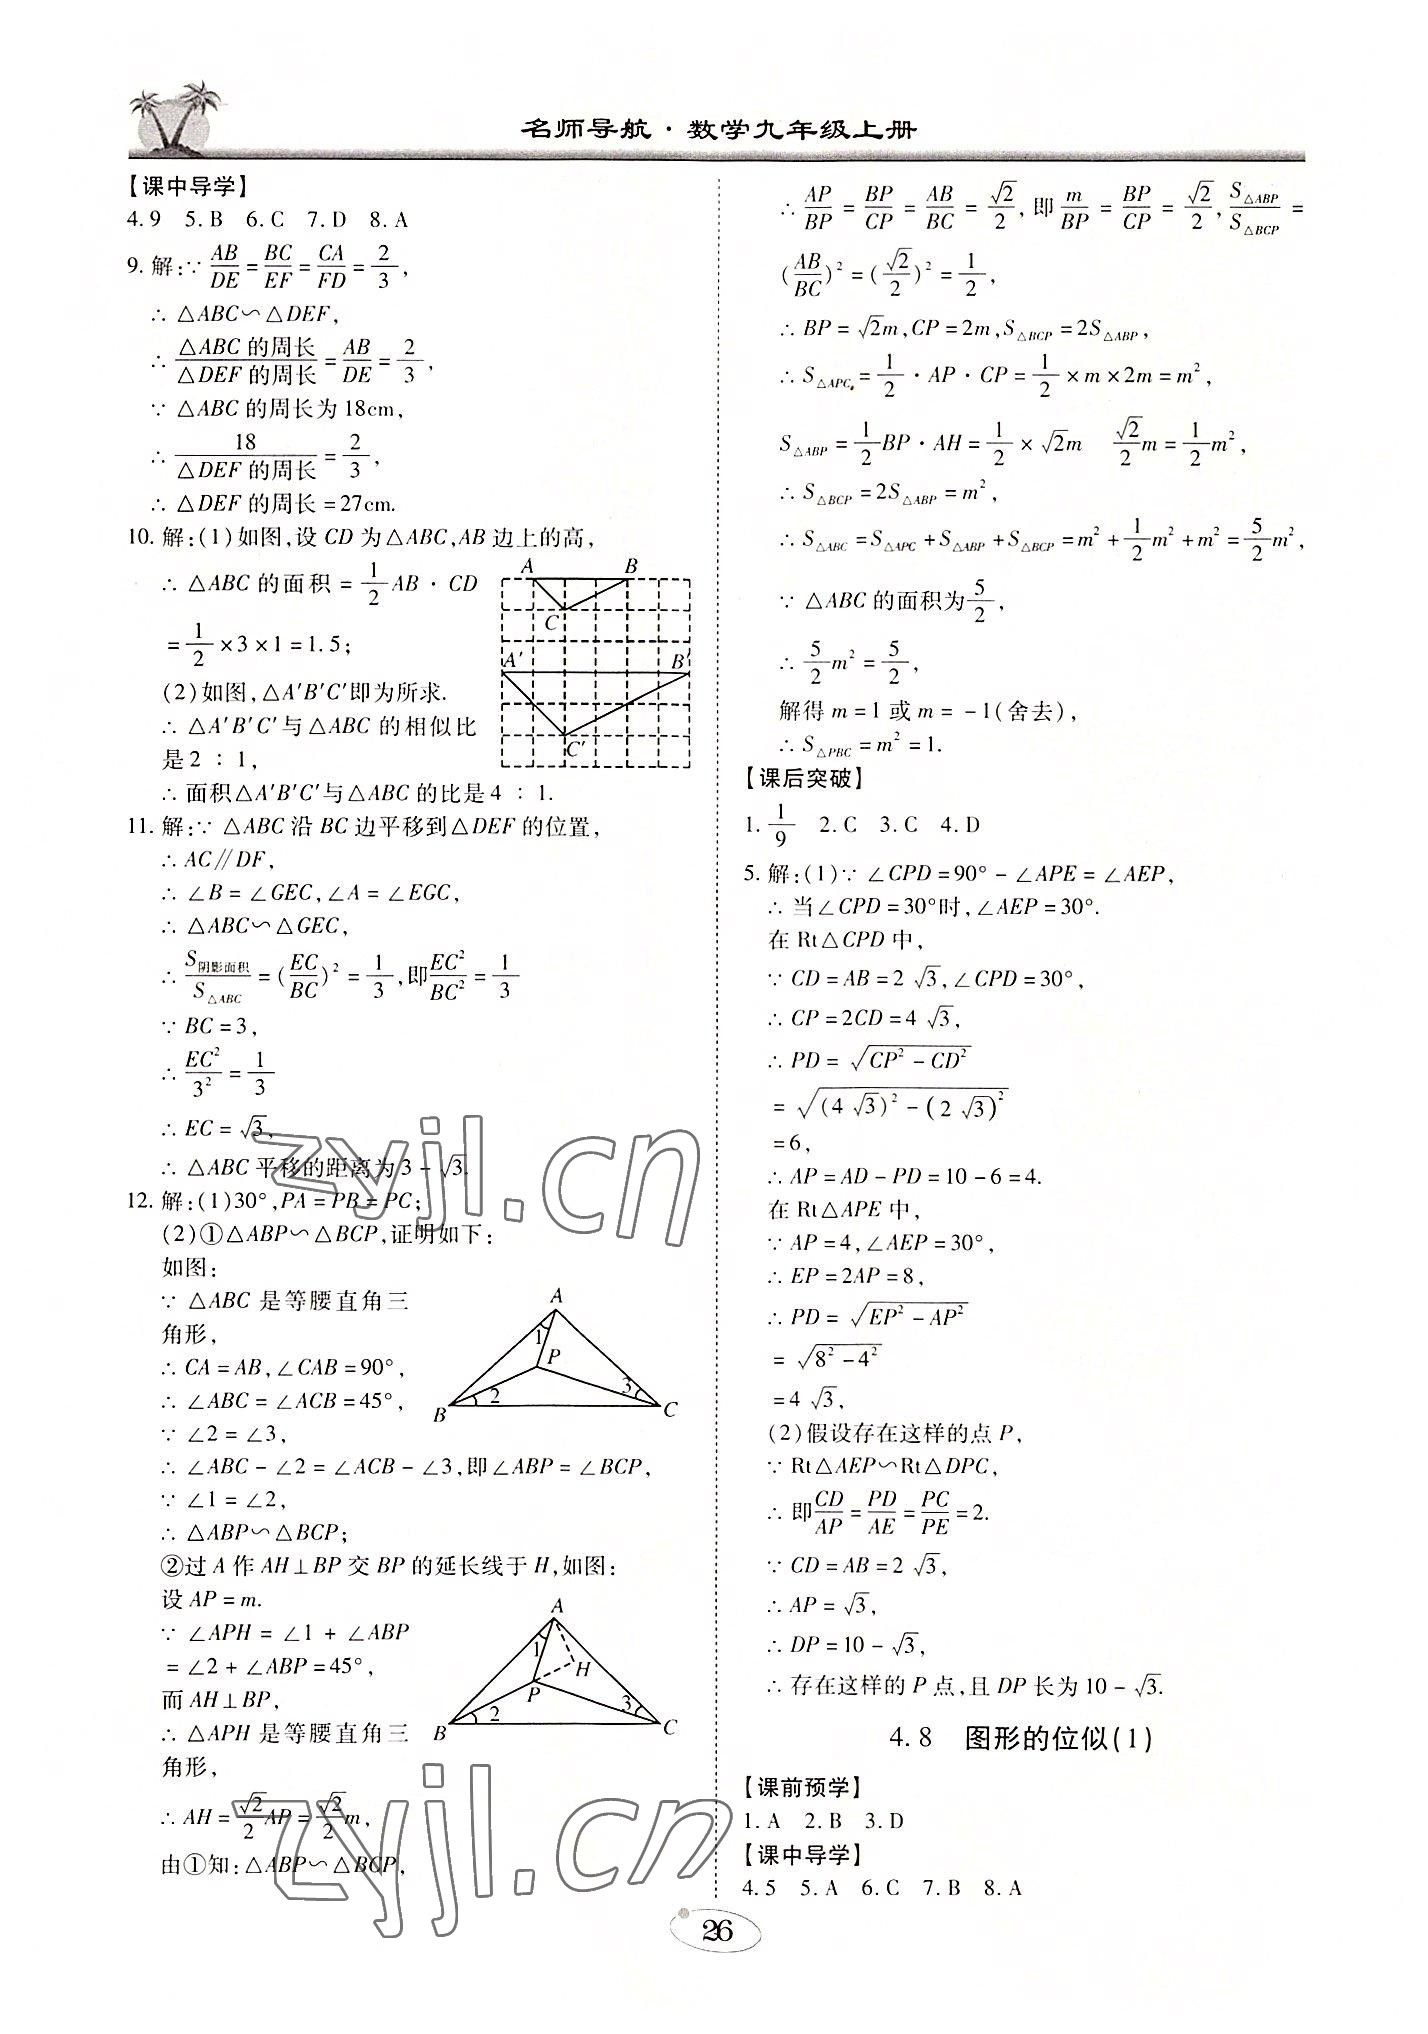 名师导航·数学九年级上册
【课中导学】
4.9  5.B  6.C  7.D  8.A
9.解:∵AB/DE=BC/EF=CA/FD=2/3,
∴△ABC∽△DEF,
∴△ABC的周长/△DEF的周长=AB/DE=2/3,
∵△ABC的周长为18cm,
∴18/△DEF的周长=2/3,
∴△DEF的周长=27cm.
10.解:(1)如图,设CD为△ABC,AB边上的高,
∴△ABC的面积=1/2AB·CD
=1/2×3×1=1.5;
(2)如图,△A'B'C'即为所求.
∴△A'B'C'与△ABC的相似比
是2∶1,
∴面积△A'B'C'与△ABC的比是4∶1.
A B
C
A' B'
C'
11.解:∵△ABC沿BC边平移到△DEF的位置,
∴AC∥DF,
∴∠B=∠GEC,∠A=∠EGC,
∴△ABC∽△GEC,
∴S阴影面积/S△ABC=(EC/BC)²=1/3,即EC²/BC²=1/3
∵BC=3,
∴EC²/3²=1/3
∴EC=√3,
∴△ABC平移的距离为3-√3.
12.解:(1)30°,PA=PB=PC;
(2)①△ABP∽△BCP,证明如下:
如图:
∵△ABC是等腰直角三
角形,
∴CA=AB,∠CAB=90°,
∴∠ABC=∠ACB=45°,
∵∠2=∠3,
∴∠ABC-∠2=∠ACB-∠3,即∠ABP=∠BCP,
∵∠1=∠2,
∴△ABP∽△BCP;
A
1
P
2 3
B C
②过A作AH⊥BP交BP的延长线于H,如图:
设AP=m.
∵∠APH=∠1+∠ABP
=∠2+∠ABP=45°,
而AH⊥BP,
∴△APH是等腰直角三
角形,
∴AH=√2/2AP=√2/2m,
由①知:△ABP∽△BCP,
A
1
H
P
2 3
B C
∴AP/BP=BP/CP=AB/BC=√2/2,即m/BP=BP/CP=√2/2,S△ABP/S△BCP=
(AB/BC)²=(√2/2)²=1/2,
∴BP=√2m,CP=2m,S△BCP=2S△ABP,
∴S△APC=1/2·AP·CP=1/2×m×2m=m²,
S△ABP=1/2BP·AH=1/2×√2m √2/2m=1/2m²,
∴S△BCP=2S△ABP=m²,
∴S△ABC=S△APC+S△ABP+S△BCP=m²+1/2m²+m²=5/2m²,
∵△ABC的面积为5/2,
∴5/2m²=5/2,
解得m=1或m=-1(舍去),
∴S△PBC=m²=1.
【课后突破】
1.1/9  2.C  3.C  4.D
5.解:(1)∵∠CPD=90°-∠APE=∠AEP,
∴当∠CPD=30°时,∠AEP=30°.
在Rt△CPD中,
∵CD=AB=2√3,∠CPD=30°,
∴CP=2CD=4√3,
∴PD=√(CP²-CD²)
=√((4√3)²-(2√3)²)
=6,
∴AP=AD-PD=10-6=4.
在Rt△APE中,
∵AP=4,∠AEP=30°,
∴EP=2AP=8,
∴PD=√(EP²-AP²)
=√(8²-4²)
=4√3,
(2)假设存在这样的点P,
∵Rt△AEP∽Rt△DPC,
∴即CD/AP=PD/AE=PC/PE=2.
∵CD=AB=2√3,
∴AP=√3,
∴DP=10-√3,
∴存在这样的P点,且DP长为10-√3.
4.8 图形的位似(1)
【课前预学】
1.A  2.B  3.D
【课中导学】
4.5  5.A  6.C  7.B  8.A
26
zyjl.cn
zyjl.cn